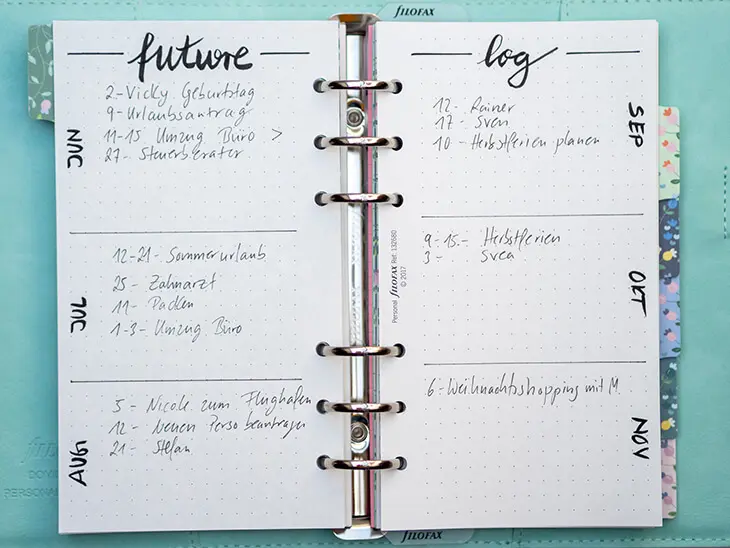 FILOFAX
future
JUN
2-Vicky Geburtstag
9-Urlaubsantrag
11-15 Umzug Büro >
27- Steuerberater
JUL
12-21- Sommerurlaub
25- Zahnarzt
11- Packen
1-3- Umzug Büro
AUG
5- Nicole zum Flughafen
12- Neuen Perso beantragen
21- Stefan
log
SEP
12- Rainer
17- Sven
10- Herbstferien planen
OKT
9-15.- Herbstferien
3- Svea
NOV
6-Weihnachtsshopping mit M.
Personal FILOFAX Ref: 132680
© 2017
FILOFAX